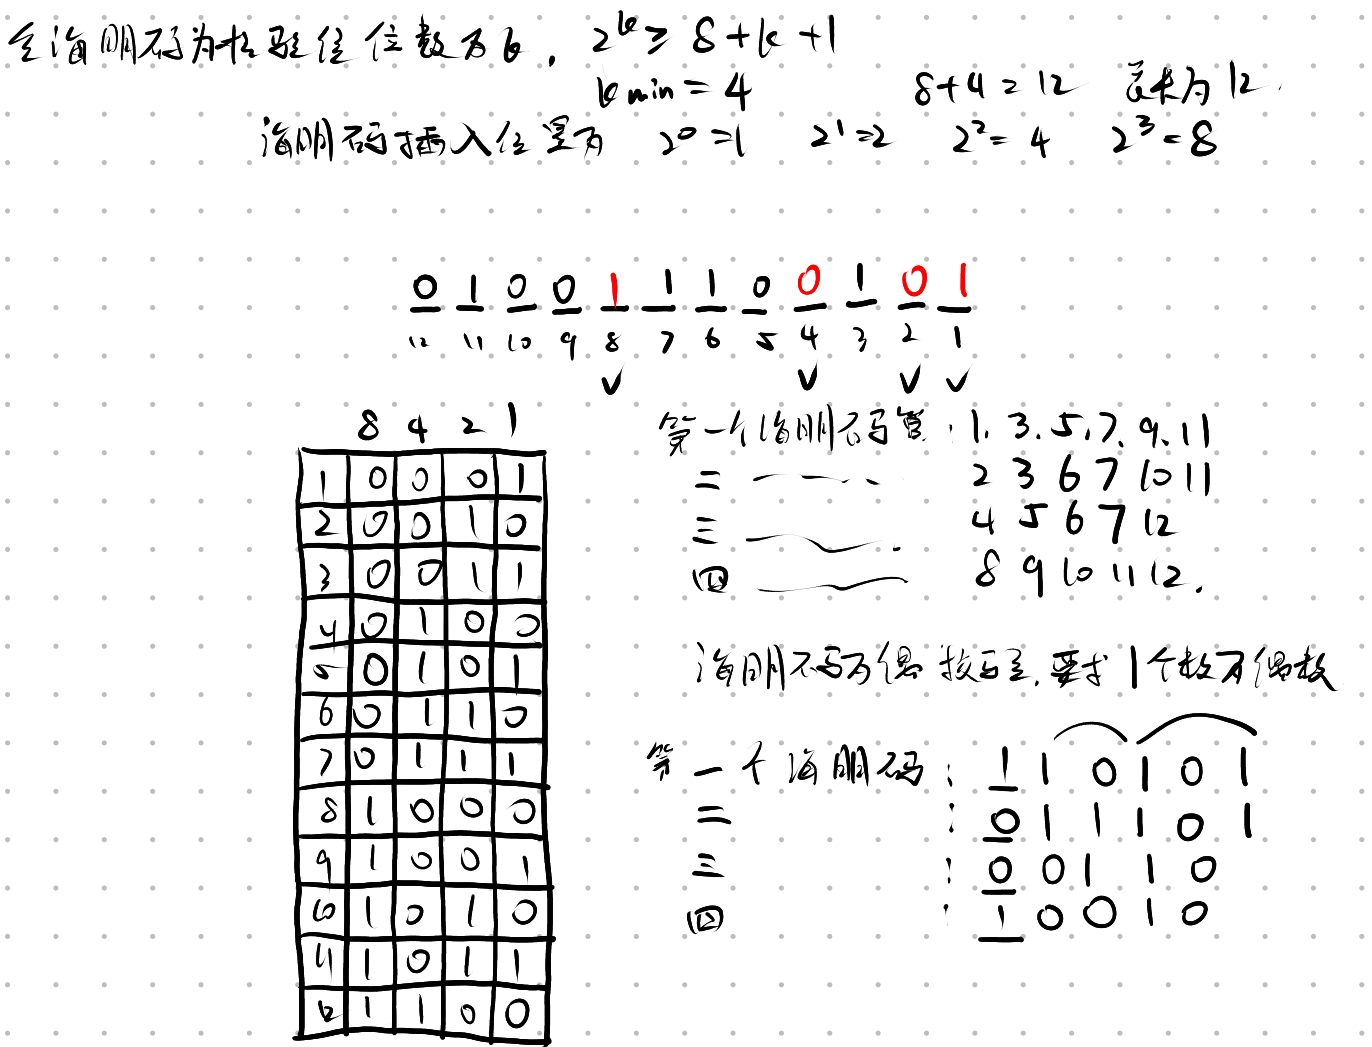 全海明码为校验位 位数为k, 2^k ≥ 8+k+1
k min = 4 8+4=12 总长为12.
海明码插入位置为 2^0=1 2^1=2 2^2=4 2^3=8
0 1 0 0 1 1 1 0 0 1 0 1
12 11 10 9 8 7 6 5 4 3 2 1
✓ ✓ ✓ ✓
8 4 2 1
1 0 0 0 1
2 0 0 1 0
3 0 0 1 1
4 0 1 0 0
5 0 1 0 1
6 0 1 1 0
7 0 1 1 1
8 1 0 0 0
9 1 0 0 1
10 1 0 1 0
11 1 0 1 1
12 1 1 0 0
第一个海明码管: 1. 3. 5. 7. 9. 11
二 2 3 6 7 10 11
三 4 5 6 7 12
四 8 9 10 11 12.
海明码为偶校验, 要求1个数为偶数
第一个海明码: 1 1 0 1 0 1
二 : 0 1 1 1 0 1
三 : 0 0 1 1 0
四 : 1 0 0 1 0